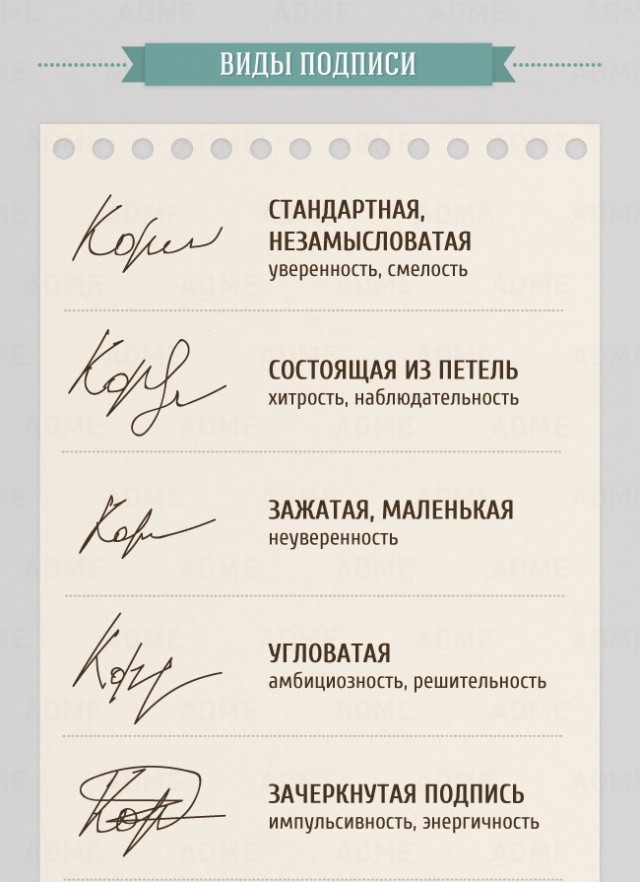 ВИДЫ ПОДПИСИ
СТАНДАРТНАЯ,
НЕЗАМЫСЛОВАТАЯ
уверенность, смелость
СОСТОЯЩАЯ ИЗ ПЕТЕЛЬ
хитрость, наблюдательность
ЗАЖАТАЯ, МАЛЕНЬКАЯ
неуверенность
УГЛОВАТАЯ
амбициозность, решительность
ЗАЧЕРКНУТАЯ ПОДПИСЬ
импульсивность, энергичность